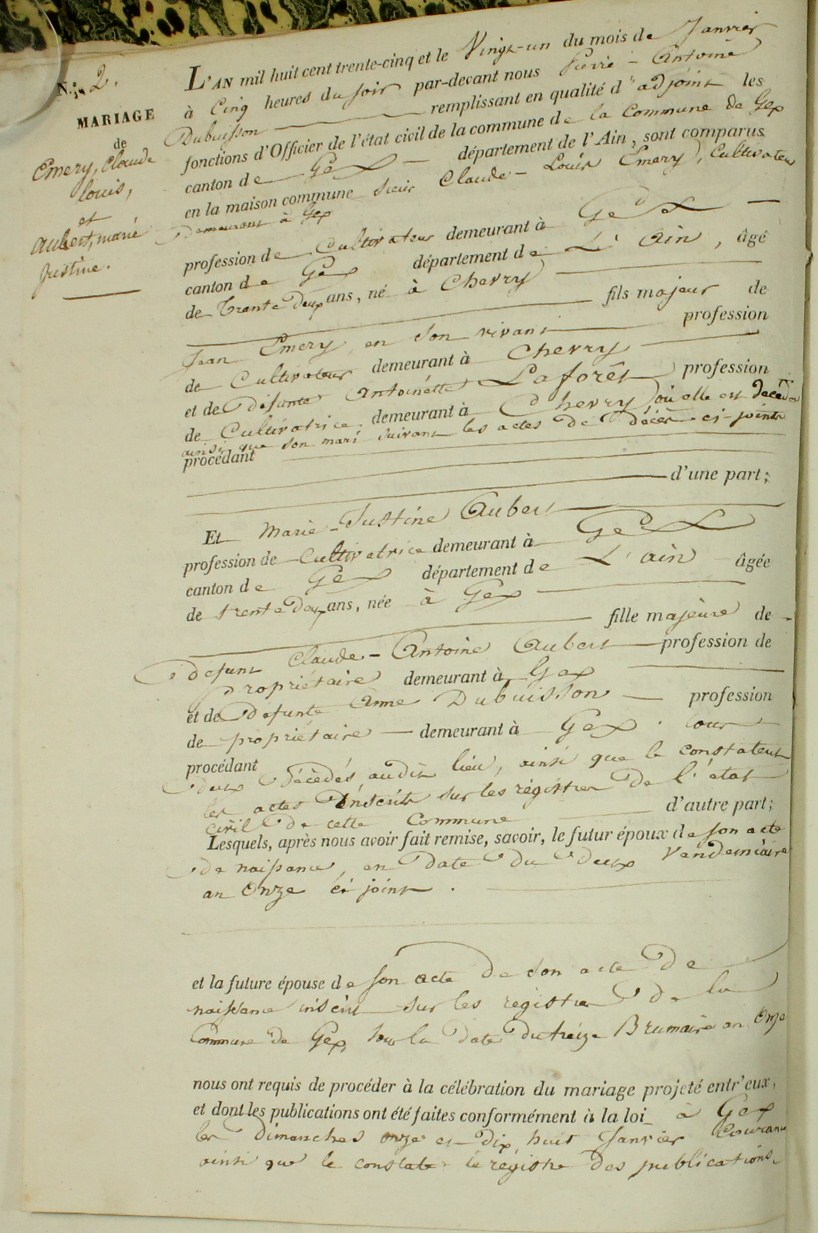 N.° 2.
MARIAGE
de
Emery, Claude
louis,
et
aubert, marie
Justine.
L'AN mil huit cent trente-cinq et le Vingt-un du mois de Janvier
à Cinq heures du soir par-devant nous Pierre-Antoine
Dubuisson remplissant en qualité d'adjoint les
fonctions d'Officier de l'état civil de la commune de la Commune de Gex
canton de Gex département de l'Ain, sont comparus
en la maison commune sieur Claude-Louis Emery, Cultivateur
Demeurant à Gex
profession de Cultivateur demeurant à Gex
canton de Gex département de L'Ain, âgé
de Trente Deux ans, né à Chevry
fils majeur de
Jean Emery en son vivant profession
de Cultivateur demeurant à Chevry
et de Défunte Antoinette Laforêt profession
de Cultivatrice demeurant à Chevry où elle est décédée
ainsi que son mari suivant les actes de Décès ci-joints
procédant
d'une part;
Et Marie-Justine Aubert
profession de Cultivatrice demeurant à Gex
canton de Gex département de L'ain âgée
de trente Deux ans, née à Gex
fille majeure de
défunt Claude-Antoine Aubert profession de
propriétaire demeurant à Gex
et de Defunte Anne Dubuisson profession
de propriétaire demeurant à Gex . tous
procédant
deux Décédés audit lieu, ainsi que le constatent
les actes Inscrits sur les régistres De l'état
civil De cette Commune d'autre part;
Lesquels, après nous avoir fait remise, savoir, le futur époux de son acte
De naissance, en Date Du Deux Vendemiaire
an Onze ci joint .
et la future épouse de son acte De son acte De
naissance inscrit sur les régistres De la
Commune de Gex, sous la Date Du treize Brumaire an Onze
nous ont requis de procéder à la célébration du mariage projeté entr'eux,
et dont les publications ont été faites conformément à la loi à Gex
les Dimanches onze et Dix huit Janvier Courant
ainsi que le constate le régistre Des publications.